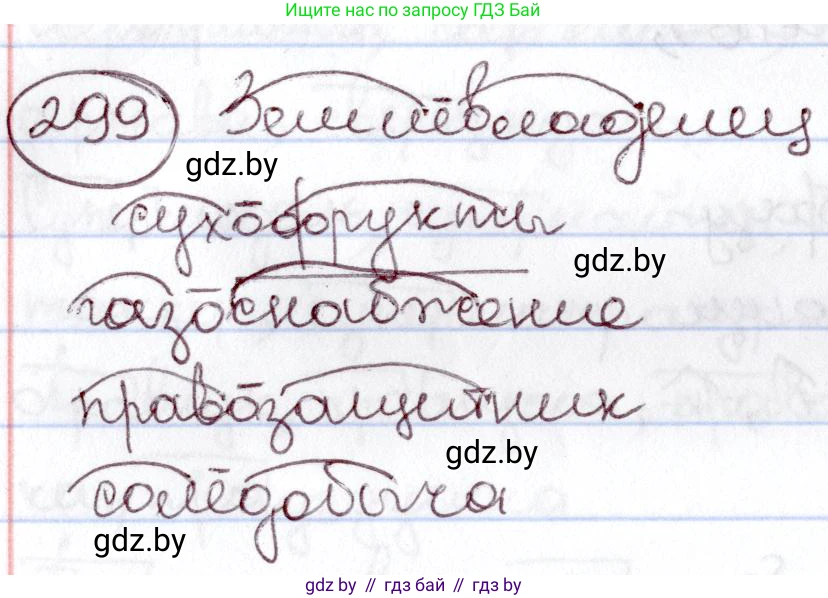 Ищите нас по запросу ГДЗ Бай
299 Землевладелец
gdz.by
сухофрукты
gdz.by
газоснабжение
правозащитник
gdz.by
соледобыча
gdz.by
gdz by // гдз бай // гдз by